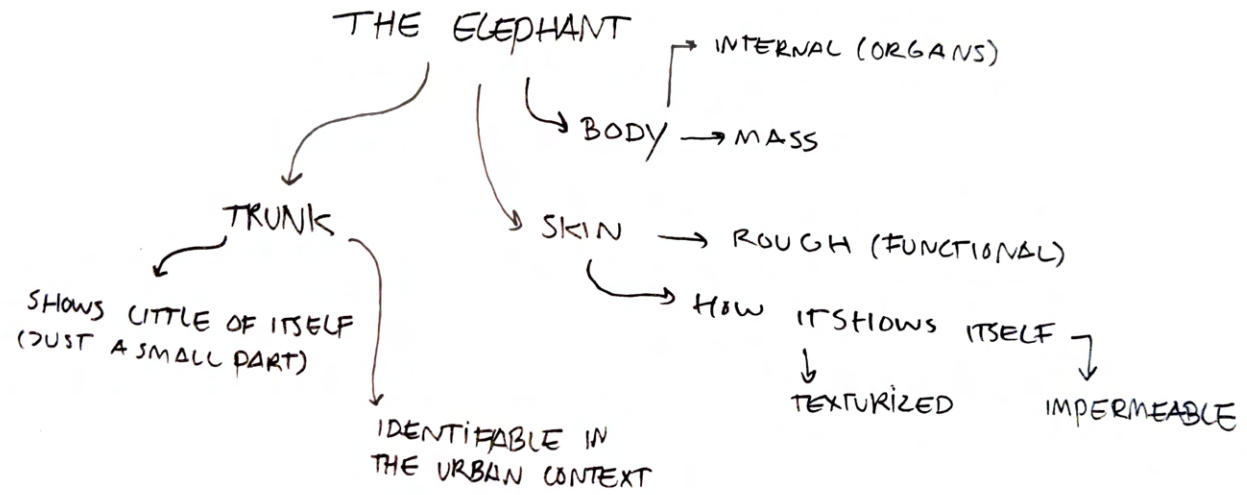 THE ELEPHANT
INTERNAL (ORGANS)
BODY → MASS
TRUNK
SKIN → ROUGH (FUNCTIONAL)
SHOWS LITTLE OF ITSELF
(JUST A SMALL PART)
HOW IT SHOWS ITSELF
TEXTURIZED
IMPERMEABLE
IDENTIFABLE IN
THE URBAN CONTEXT